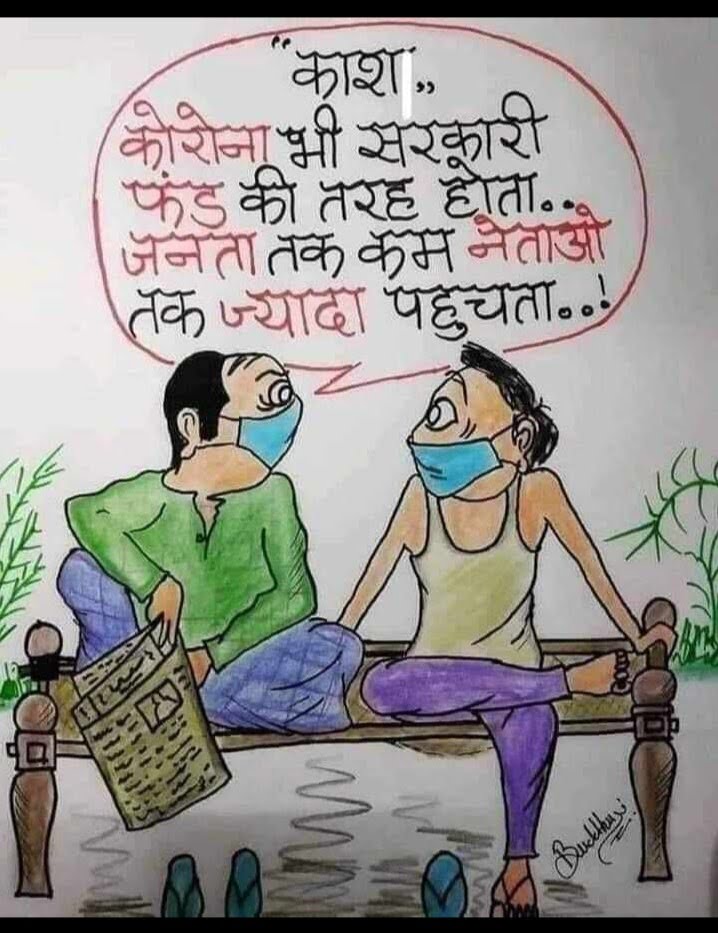 “काश..
कोरोना भी सरकारी
फंड की तरह होता..
जनता तक कम नेताओ
तक ज्यादा पहुचता..!